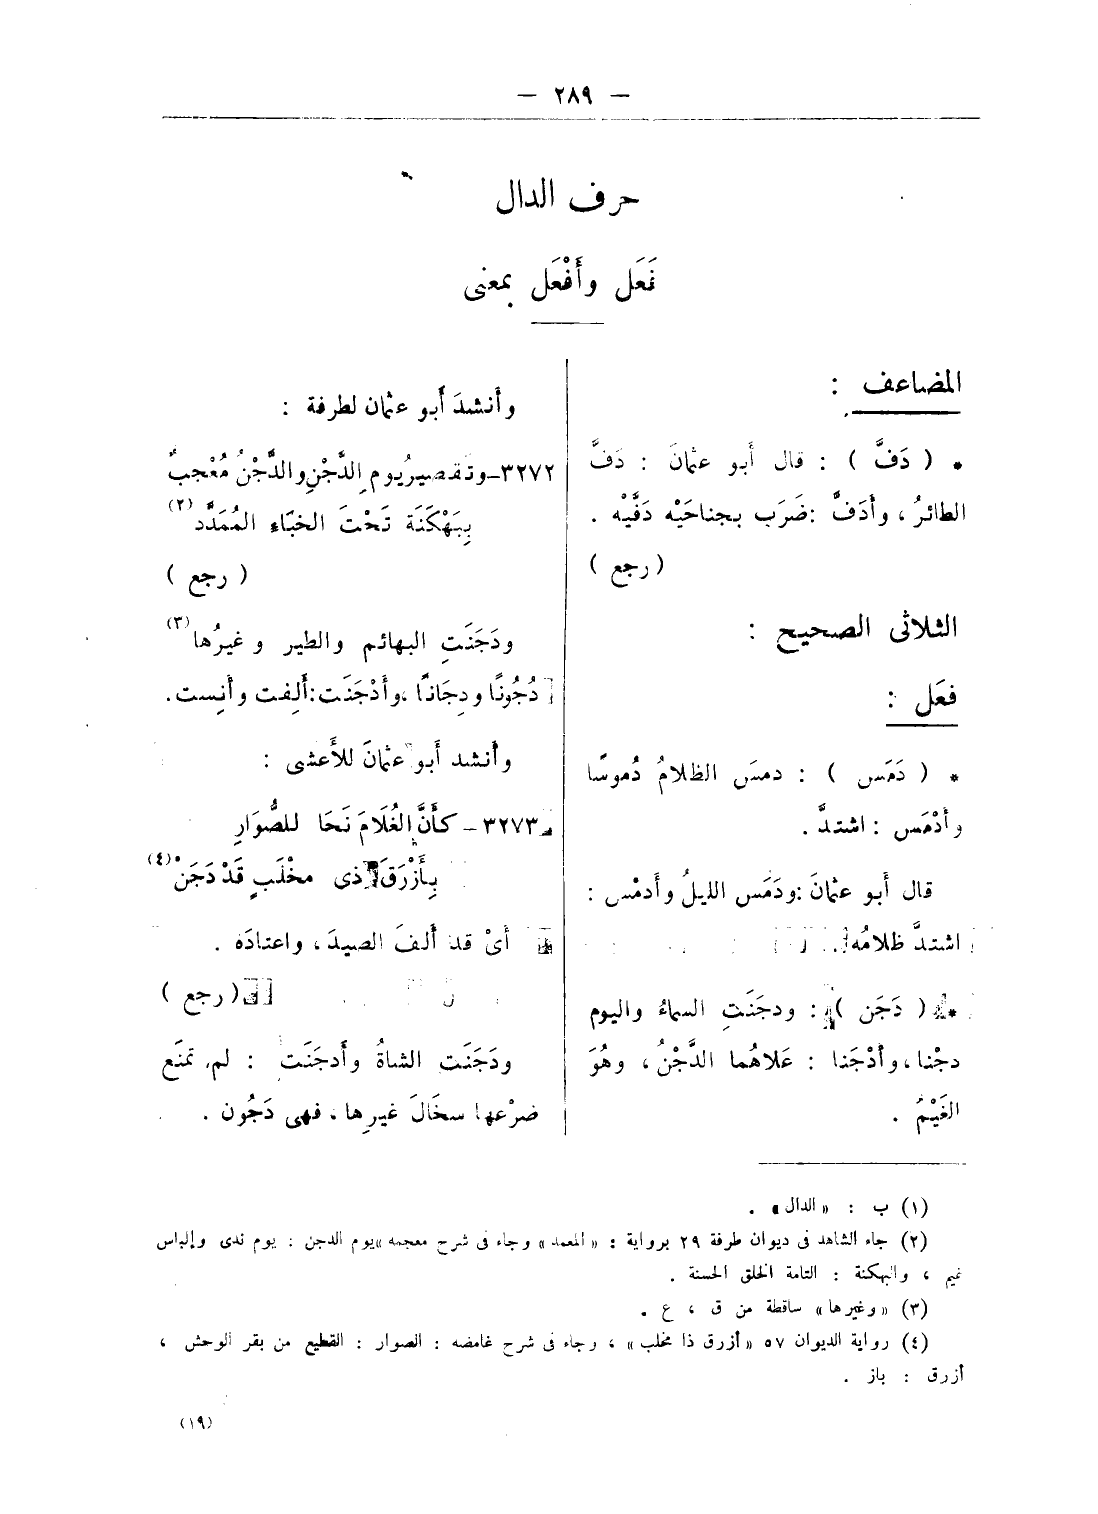 — ٢٨٩ —
حرف الدال
فَعَل وأَفْعَل بمعنى
المضاعف :
* ( دَفَّ ) : قال أبو عثمانَ : دَفَّ
الطائرُ ، وأَدَفَّ : ضَرَب بجناحَيْه دَفَّيْه .
( رجع )
الثلاثى الصحيح :
فعَل :
* ( دَمَس ) : دمسَ الظلامُ دُموسًا
وأدْمَس : اشتدَّ .
قال أبو عثمانَ : ودَمَس الليلُ وأدمْس :
اشتدَّ ظلامُه .
* ( دَجَن ) : ودجَنَتِ السماءُ واليوم
دجْنا ، وأدْجَنا : عَلاهُما الدَّجْنُ ، وهُوَ
الغَيْمُ .
وأنشدَ أبو عثمان لطرفة :
٣٢٧٢ـ وتقصيرُ يوم الدَّجْنِ والدَّجْنُ مُعْجبٌ
بِبَهْكَنَة تَحْتَ الخبَاءِ المُمَدَّد (٢)
( رجع )
ودَجَنَتِ البهائم والطير وغيرُها (٣)
دُجُونًا ودِجَانًا ، وأَدْجَنَت : أَلِفت وأنِست .
وأنشد أبو عثمانَ للأَعشى :
٣٢٧٣ـ كأَنَّ الغُلَامَ نَحَا للصُّوَارِ
بِأَزْرَقَ ذى مخْلَبٍ قَدْ دَجَنْ (٤)
أىْ قد أَلفَ الصيدَ ، واعتادَه .
( رجع )
ودَجَنَت الشاةُ وأَدجَنَت : لم تمنَع
ضرْعها سخَالَ غيرِها ، فهى دَجُون .
(١) ب : « الدال » .
(٢) جاء الشاهد فى ديوان طرفة ٢٩ برواية : « المعمد » وجاء فى شرح معجمه » يوم الدجن : يوم ندى وإلباس
غيم ، والبهكنة : التامة الخلق الحسنة .
(٣) « وغيرها » ساقطة من ق ، ع .
(٤) رواية الديوان ٥٧ « أزرق ذا مخلب » ، وجاء فى شرح غامضه : الصوار : القطيع من بقر الوحش ،
أزرق : باز .
(١٩)